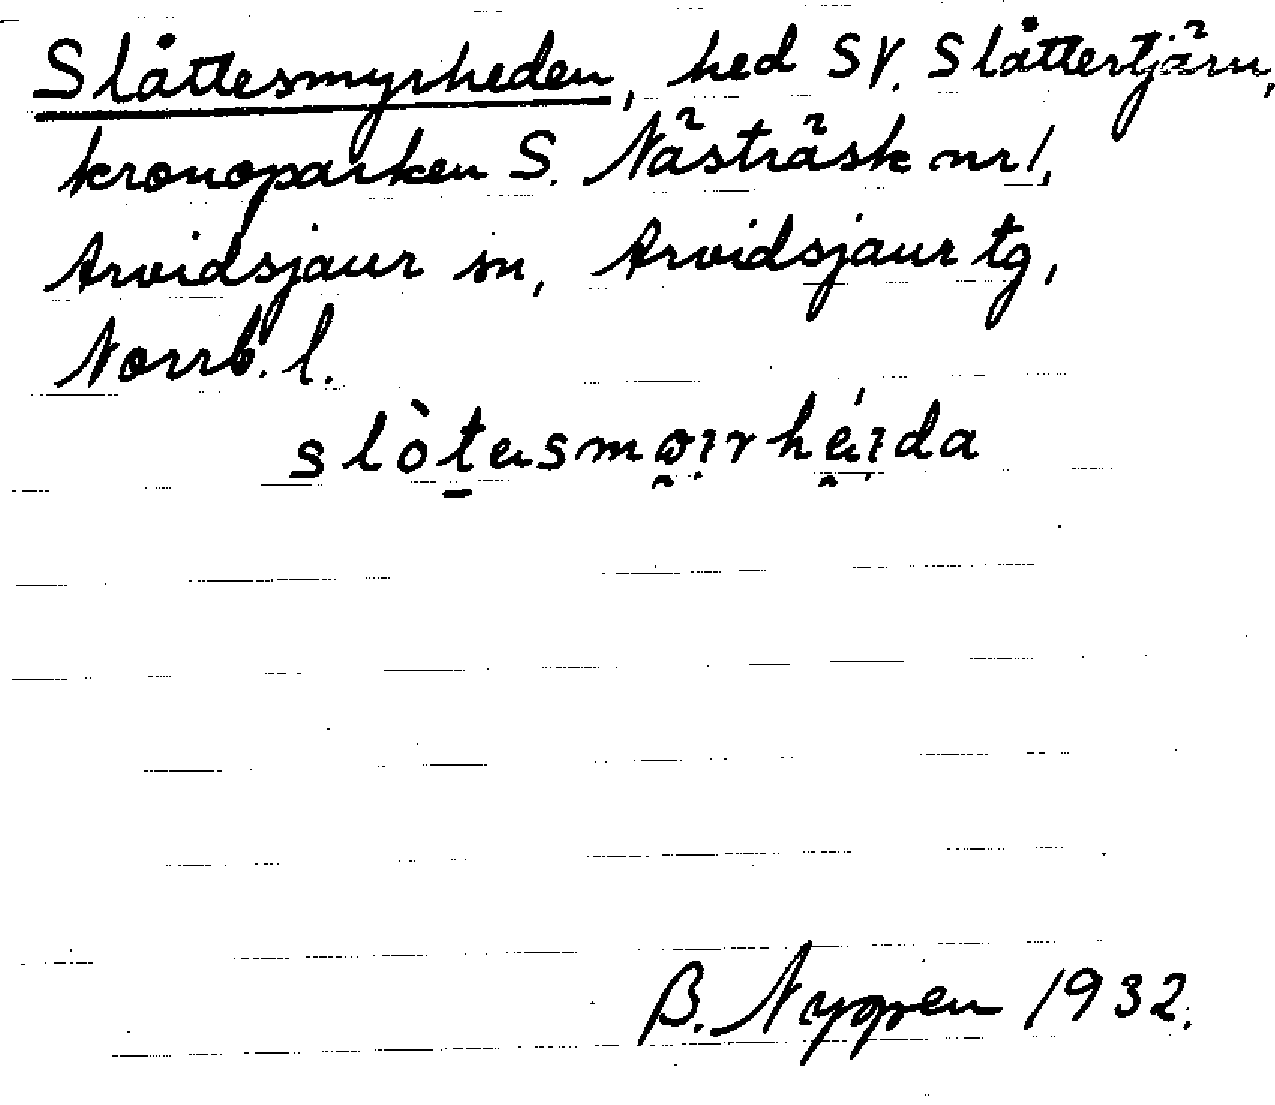 Slåttesmyrheden, hed SV. Slåttertjärn,
kronoparken S. Nästräsk nr 1,
Arvidsjaur sn, Arvidsjaur tg,
Norrb. l.
B. Nygren 1932.